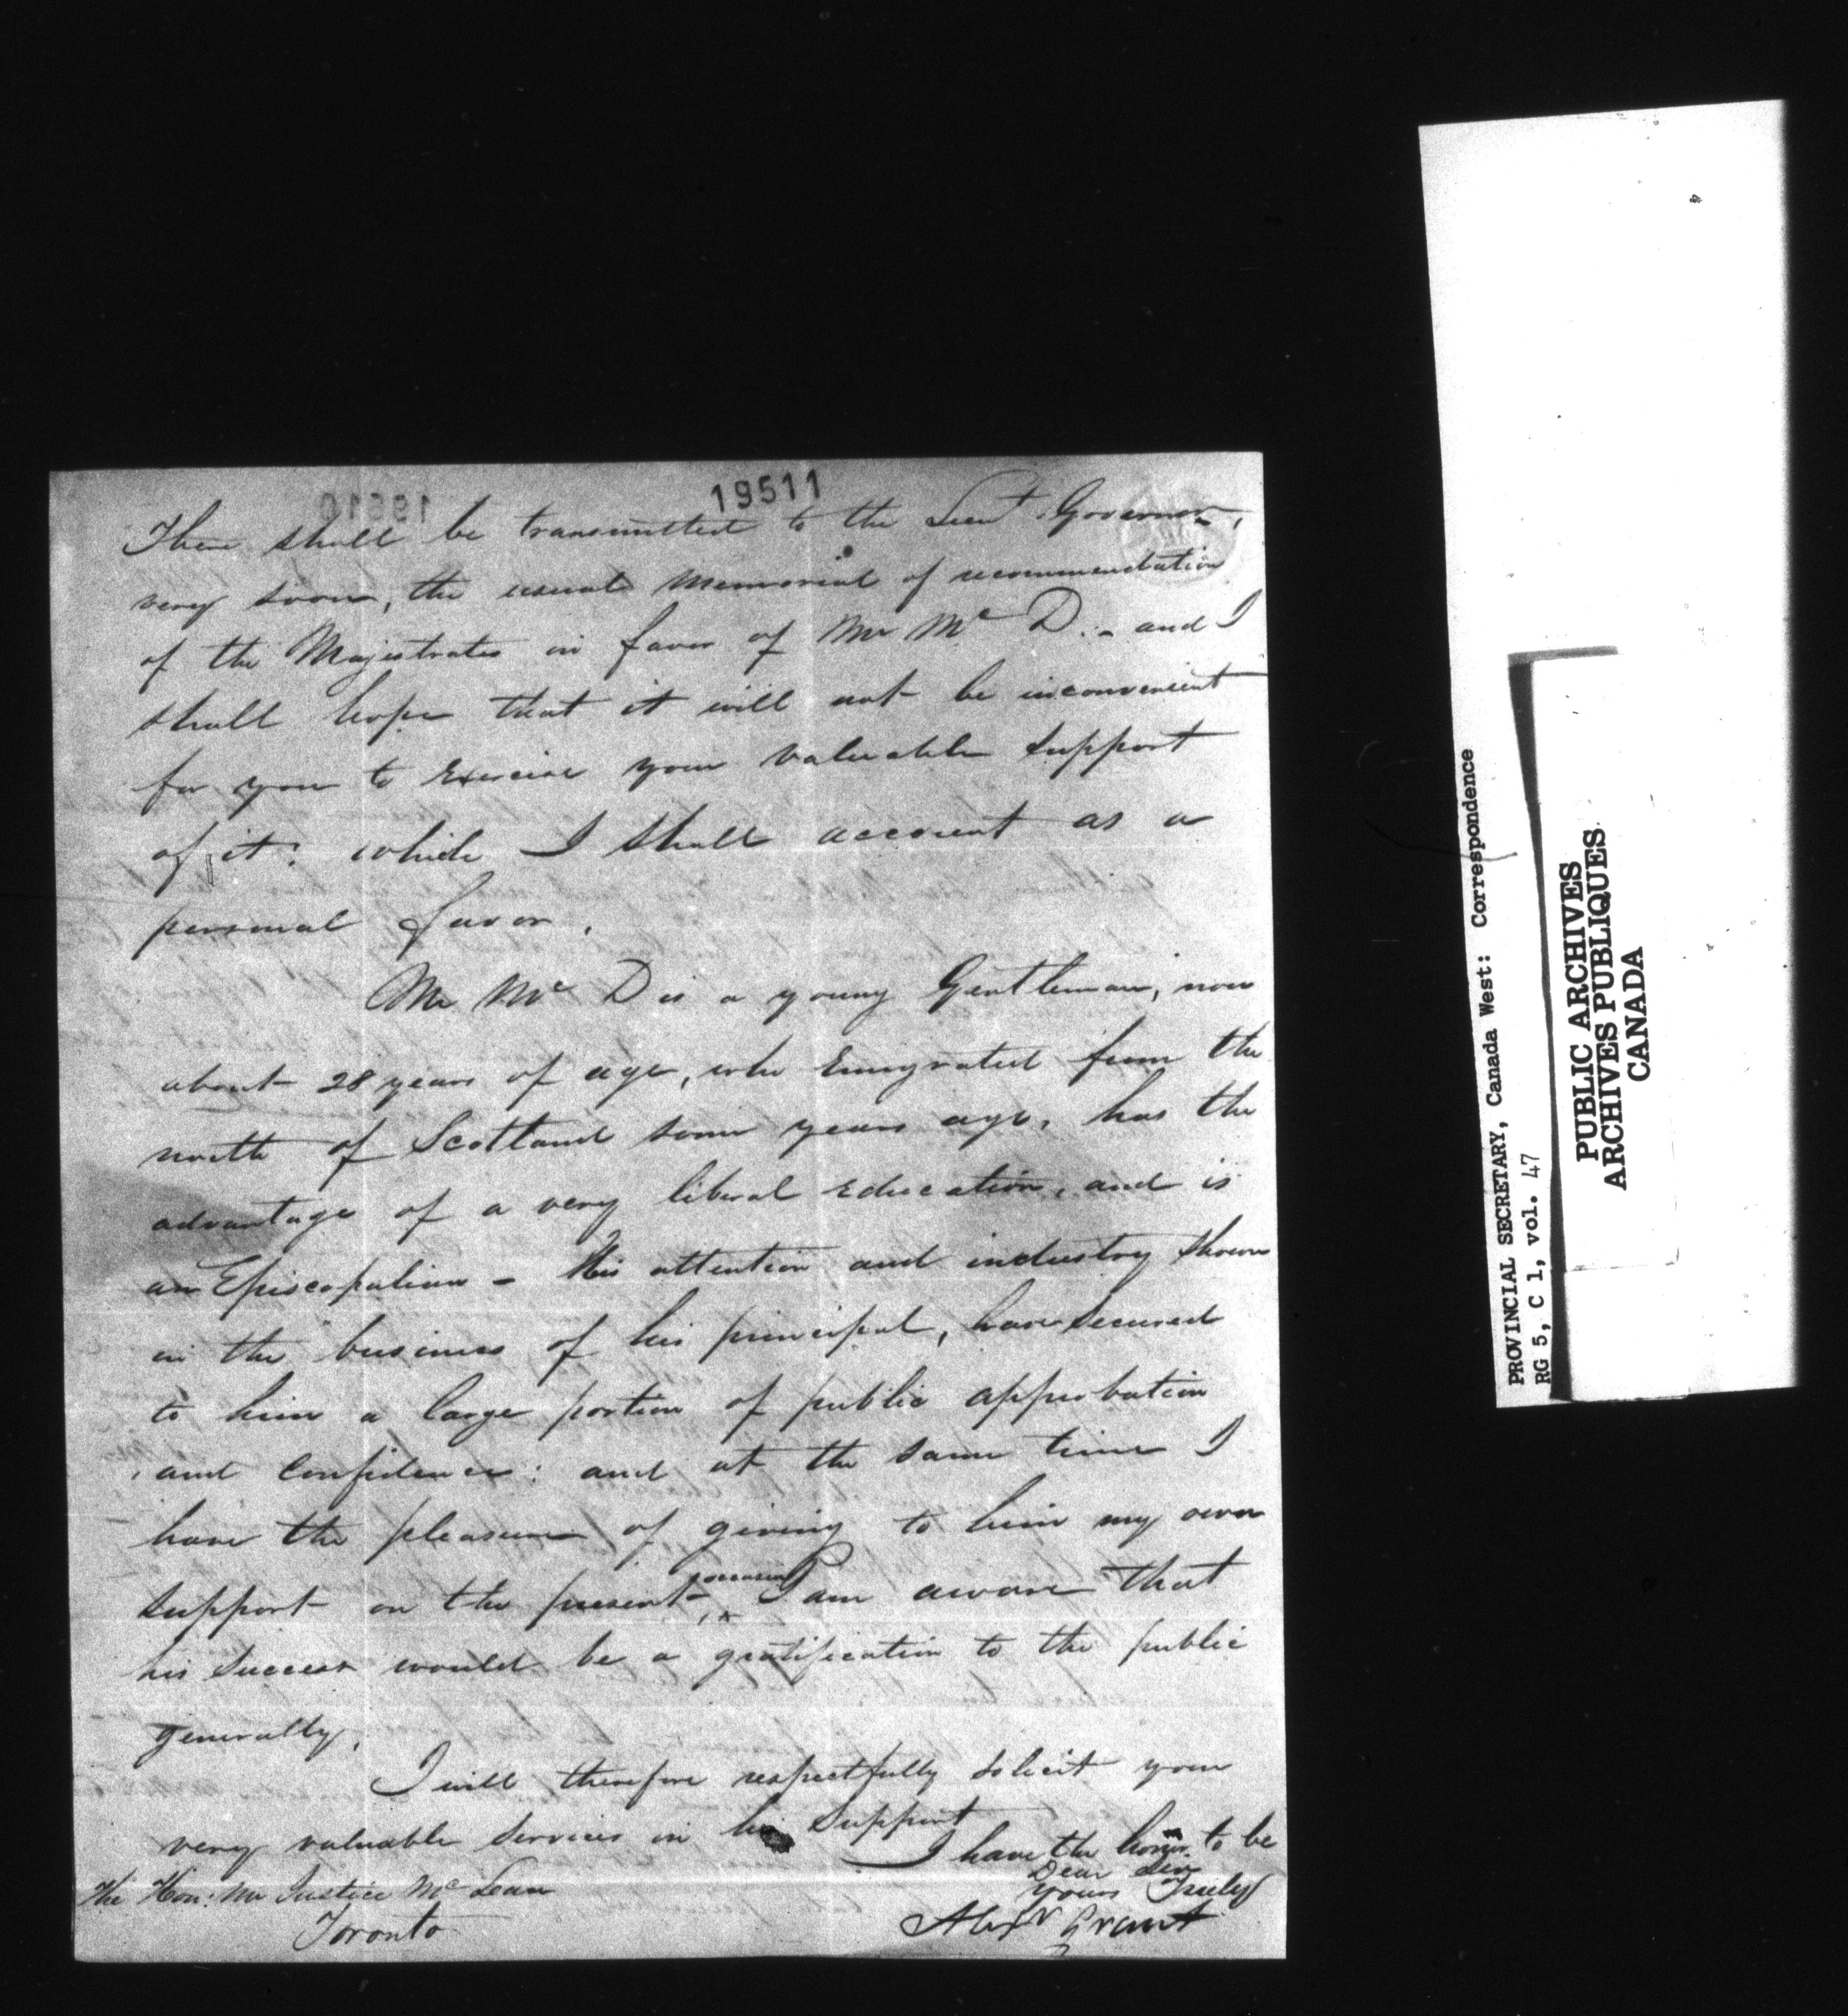 19511
There shall be transmitted to the Lieut Governor,
very soon, the usual Memorial of recommendation
of the Majistrates in favor of Mr Mc D. - and I
shall hope that it will not be inconvenient
for you to Exercise your valuable support
of it: which I shall account as a
personal favor.
Mr Mc D is a young Gentleman, now
about 28 years of age, who Emigrated from the
north of Scotland some years ago, has the
advantage of a very liberal Education, and is
an Episcopalian - His attention and industry shown
in the business of his principal, have secured
to him a large portion of public approbation
and Confidence: and at the same time I
have the pleasure of giving to him my own
support on the present occasion, I am aware that
his success would be a gratification to the public
generally.
I will therefore respectfully solicit your
very valuable services in his support
I have the honor to be
Dear Sir
Yours Truly
Alexr Grant
The Hon: Mr Justice McLean
Toronto
PROVINCIAL SECRETARY, Canada West: Correspondence
RG 5, C 1, vol. 47
PUBLIC ARCHIVES
ARCHIVES PUBLIQUES
CANADA